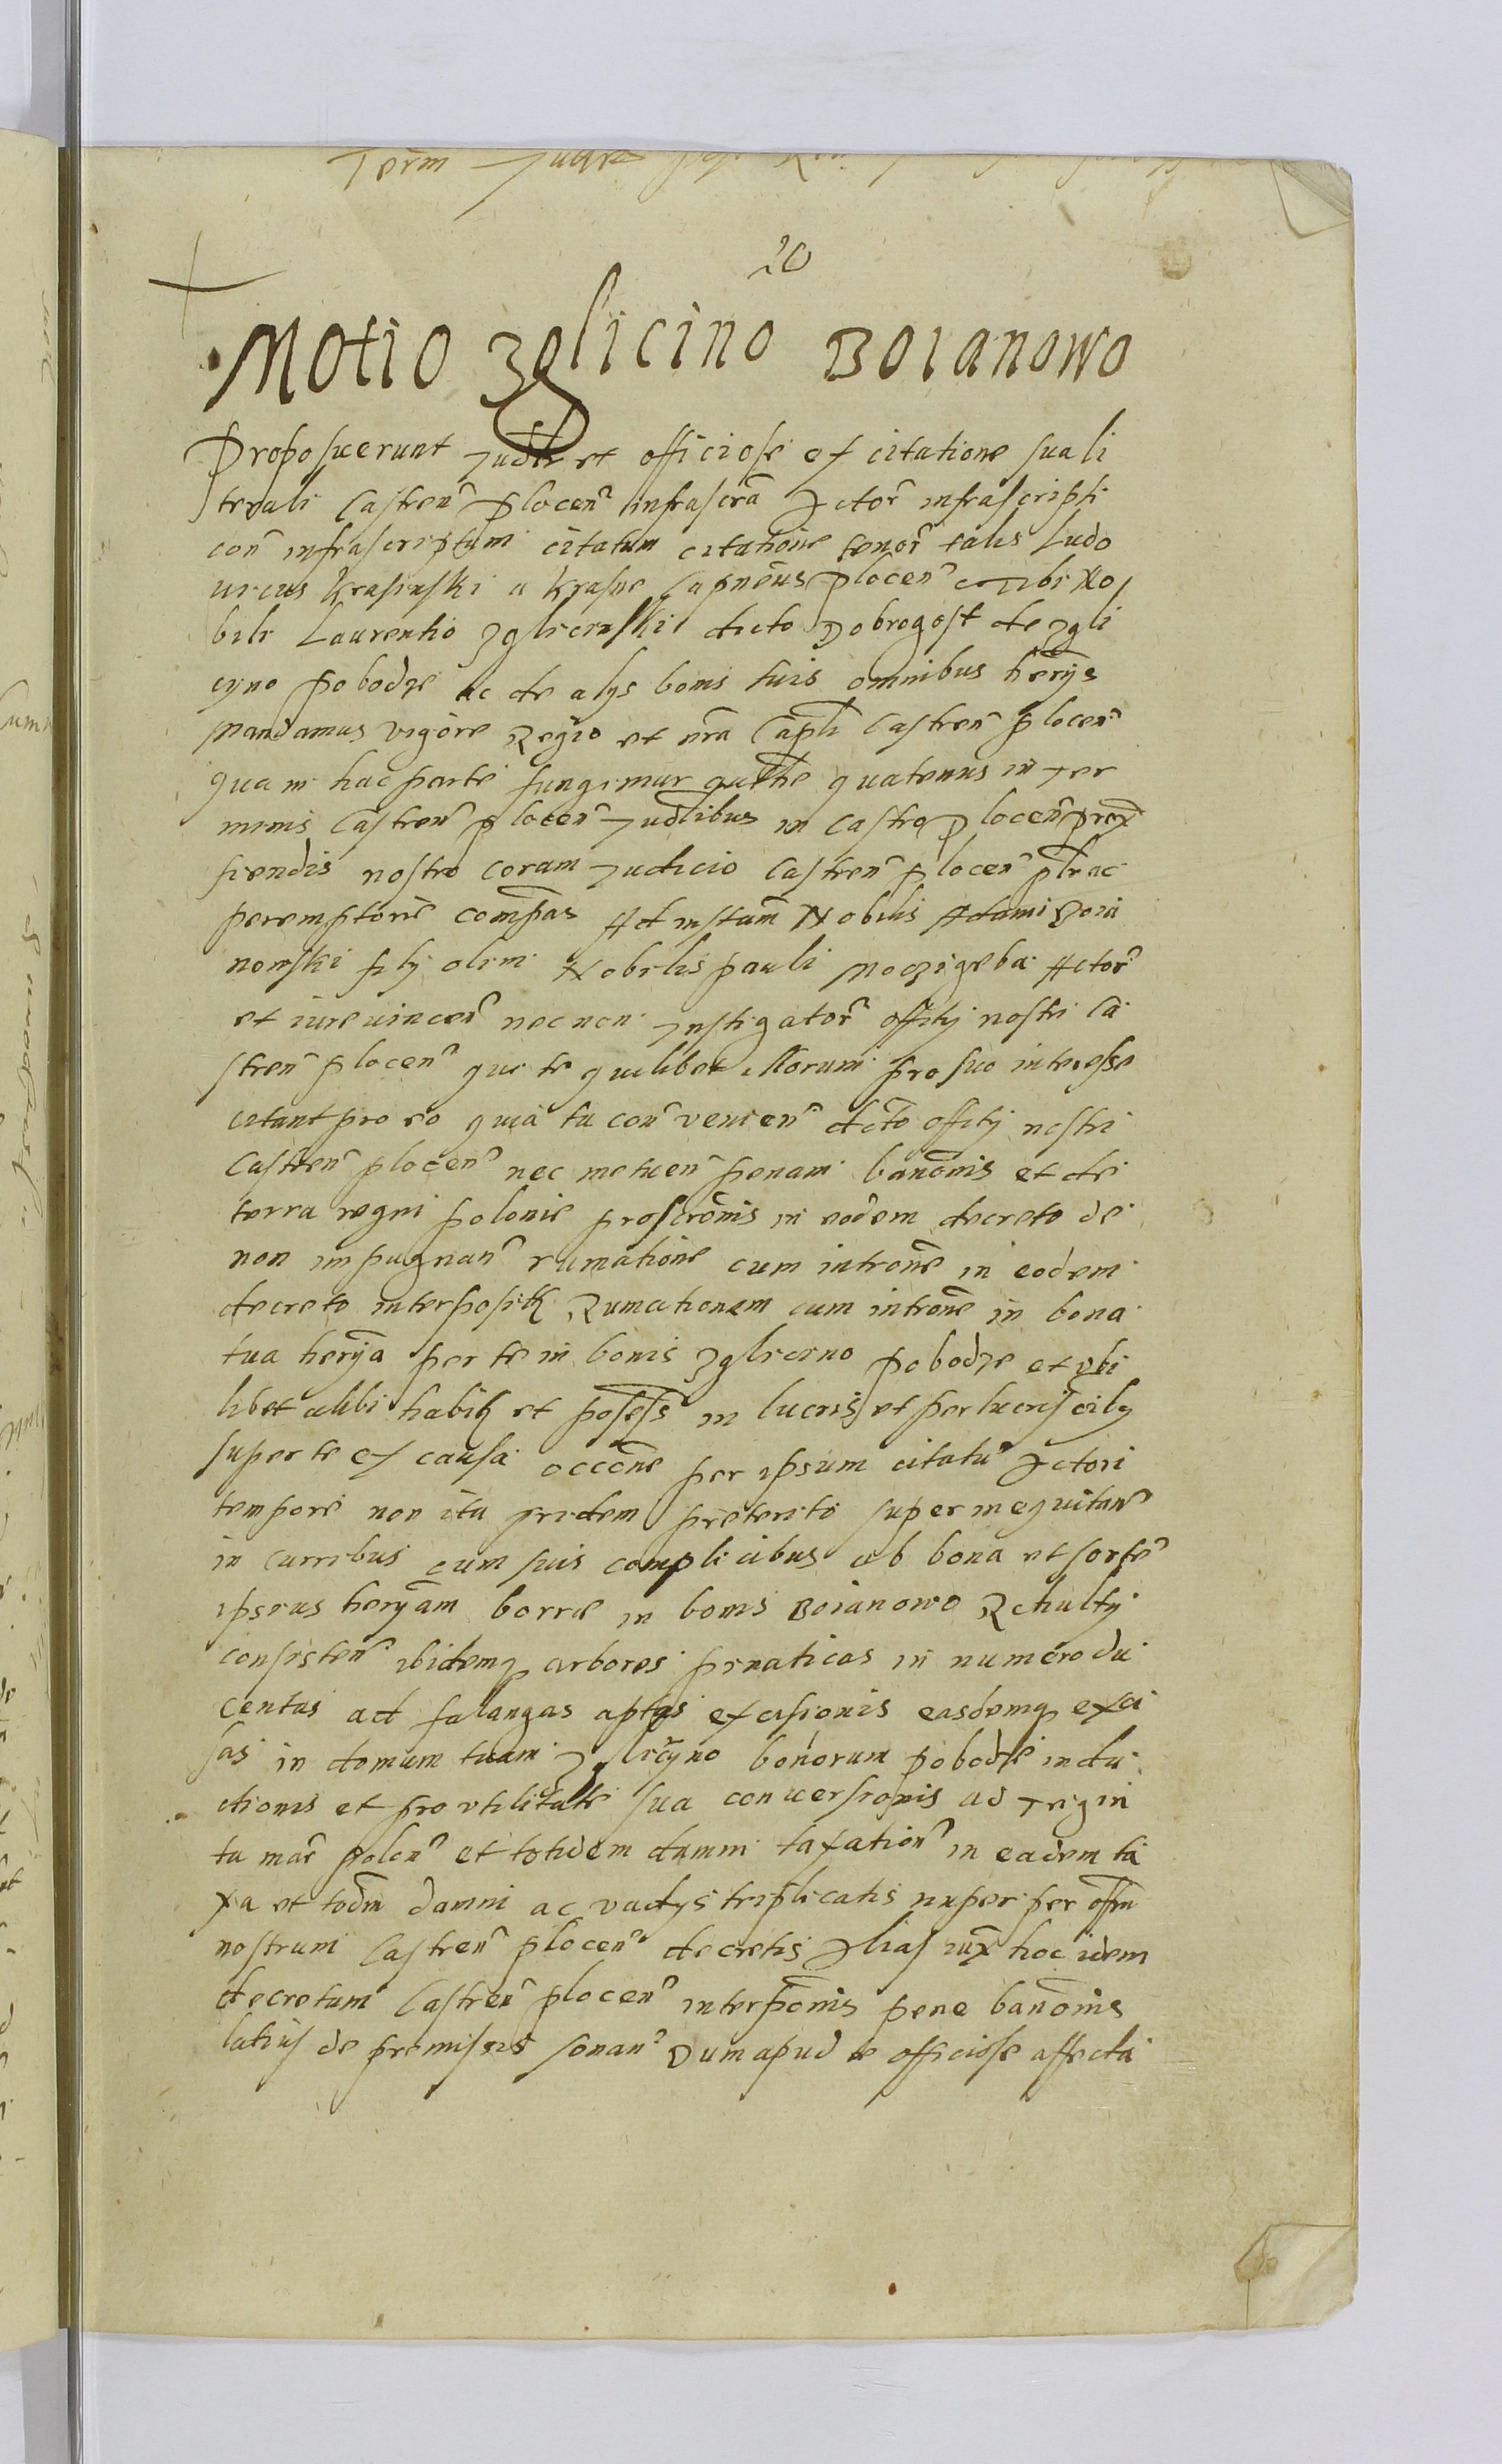 Term
20
Motio Zglicino Boianowo
Proposuerunt Judlr et officiose ex citatione sua li
terali Castren Plocen infrascra Actor infrascripti
con infrascriptum citatum citatione tenor talis Ludo
uicus Krasinski a Krasne Capneus Plocen Tibi No
bili Laurentio Zglicinski dicto Dobrogost de Zgli
cyno Pobodze ac de alys bonis tuis omnibus herys
Mandamus vigore Regio et nra Capli Castren plocen
qua in hac parte fungimur quatenus in Ter
minis Castren plocen Judlibus in Castro Plocen prox
fiendis nostro coram Judicio Castren plocen plr ac
peremptorie compas Ad instam Nobilis Adami Boia
nowski filij olim Nobilis pauli Moczigeba Actor
et iureuincen necnon Instigator offitij nostri Ca
stren plocen qui te quilibet illorum pro suo interesse
citant pro eo quia tu con venien dcto offitij nostri
Castren plocen nec metuen penam banonis et de
terra regni polonie proscronis in eodem decreto de
non impugnan rumatione cum introne in eodem
decreto interposit Rumationem cum introne in bona
tua herya per te in bonis Zglicino Pobodze et vbi
libet alibi habit et posess in lucris et perlucris cilz
super te ex causa occone per ipsum citatu Actori
tempore non ita pridem preterito superinequitan
in curribus cum suis complicibus ab bona et sorte
ipsius heryam borre in bonis Boianowo Rchulty
consisten ibidemq arbores pinaticas in numero du
centas ad falangas aptas excisionis easdemq exci
sas in domum tuam Zglicyno bonorum Pobodze indu
ctionis et pro vtilitate sua conuersionis ad Trigin
ta mar polon et totidem damni taxation in eadem ta
xa et todm damni ac vadys triplicatis nuper per offm
nostrum Castren plocen decretis Alias iux hoc idem
decretum Castren plocen interponis pene banonis
latius de premissis sonan Dum apud te officiose affecta